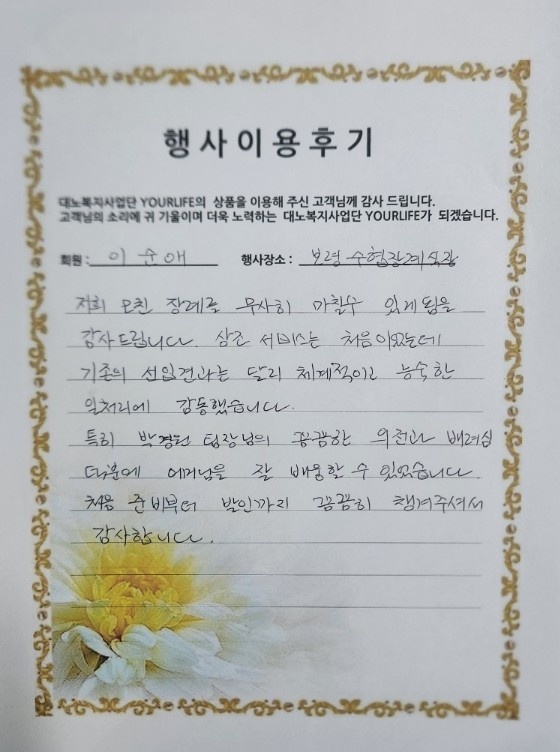 행사이용후기
대노복지사업단 YOURLIFE의 상품을 이용해 주신 고객님께 감사 드립니다.
고객님의 소리에 귀 기울이며 더욱 노력하는 대노복지사업단 YOURLIFE가 되겠습니다.
회원 : 이순애 행사장소 : 보령 수협장례식장
저희 모친 장례를 무사히 마칠수 있게 됨을
감사드립니다. 상조 서비스는 처음이었는데
기존의 선입견과는 달리 체계적이고 능숙한
일처리에 감동했습니다.
특히 팀장님의 꼼꼼한 의전과 배려심
덕분에 어머님을 잘 배웅할 수 있었습니다.
처음 준비부터 발인까지 꼼꼼히 챙겨주셔서
감사합니다.